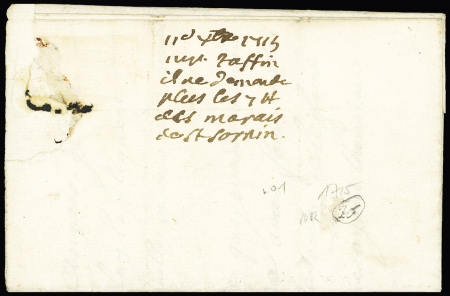 11e xbre 1715
mr. taffin
il ne demande
plus les 7 tt
des marais
de st sornin.
1715
25